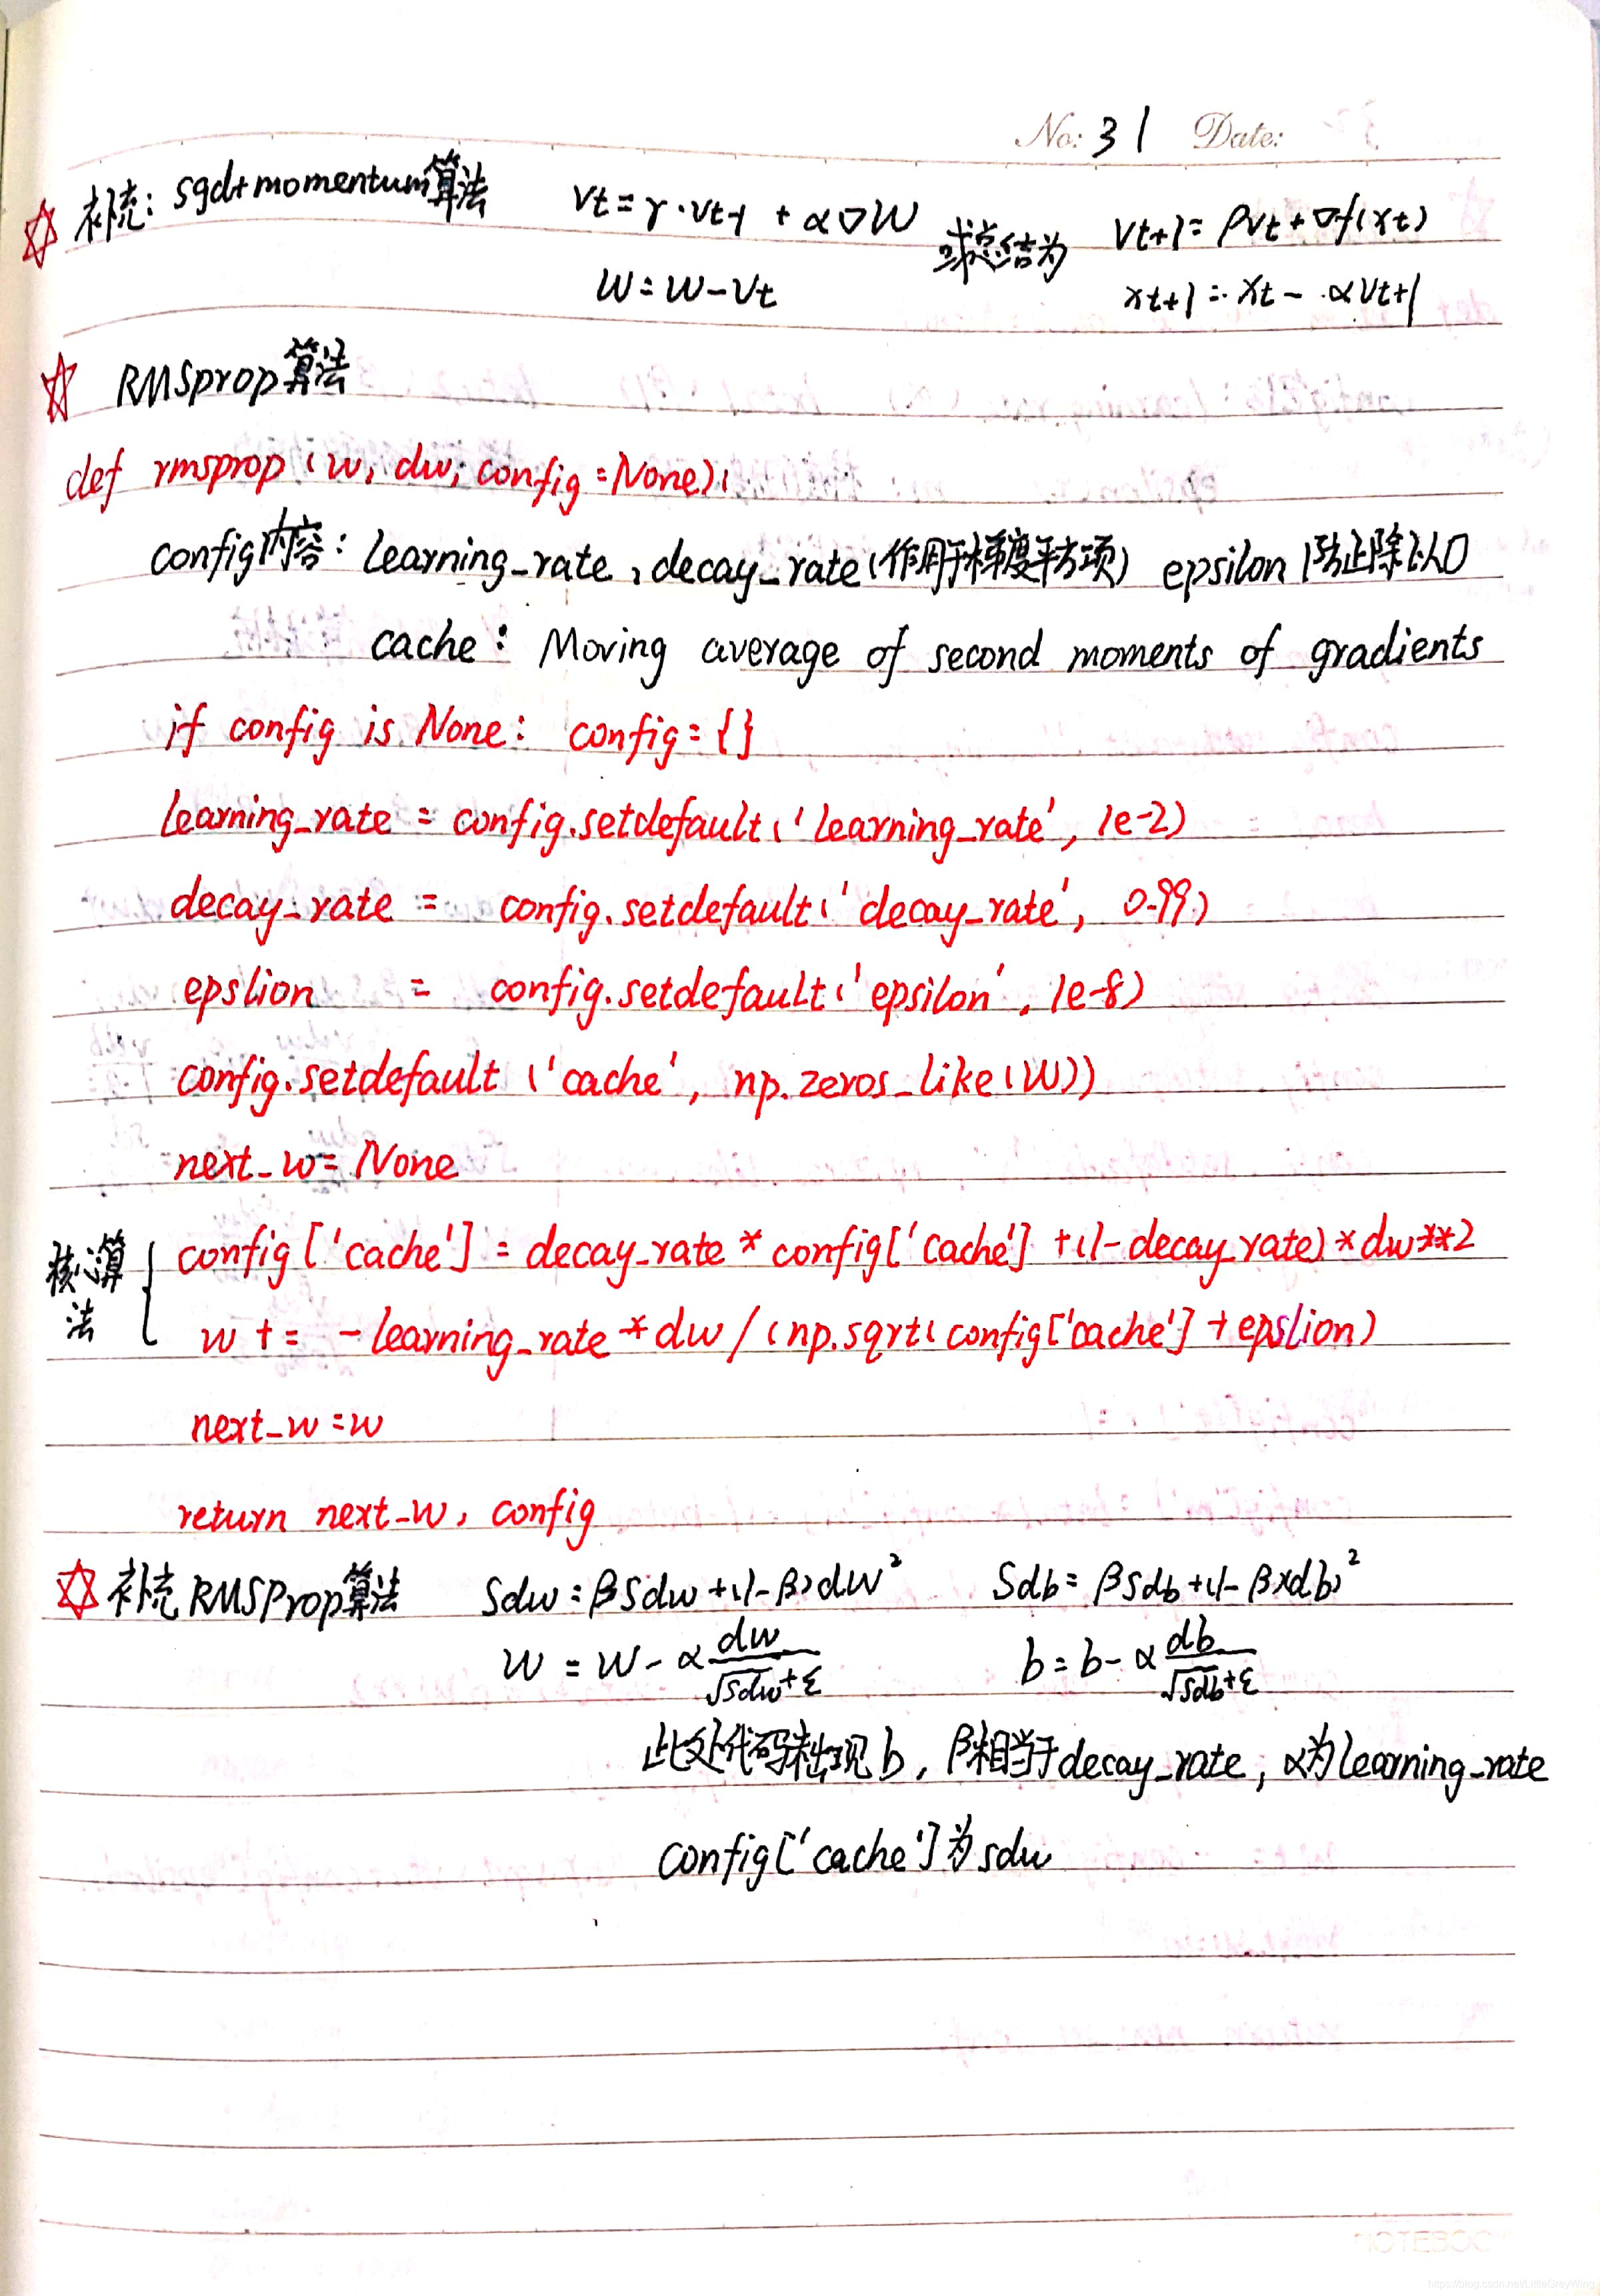 No: 31 Date:
补充: sgd+momentum算法 Vt = γ·Vt-1 + α▽W 或总结为 Vt+1 = ρVt + ▽f(xt)
W = W - Vt xt+1 = xt - αVt+1
RMSprop算法
def rmsprop (w, dw, config=None):
config内容: learning_rate, decay_rate(作用于梯度平方项) epsilon 防止除以0
cache: Moving average of second moments of gradients
if config is None: config={}
learning_rate = config.setdefault('learning_rate', 1e-2)
decay_rate = config.setdefault('decay_rate', 0.99)
epslion = config.setdefault('epsilon', 1e-8)
config.setdefault('cache', np.zeros_like(W))
next_w = None
核心算法
config['cache'] = decay_rate * config['cache'] + (1-decay_rate) * dw**2
w += -learning_rate * dw / (np.sqrt(config['cache'] + epslion)
next_w = w
return next_w, config
补充 RMSProp算法 Sdw = βSdw + (1-β)dW² Sdb = βSdb + (1-β)(db)²
W = W - α dw/√Sdw+ε b = b - α db/√Sdb+ε
此处代码未出现b, β相当于decay_rate, α为learning_rate
config['cache']为sdw
https://blog.csdn.net/LittleGreyWing